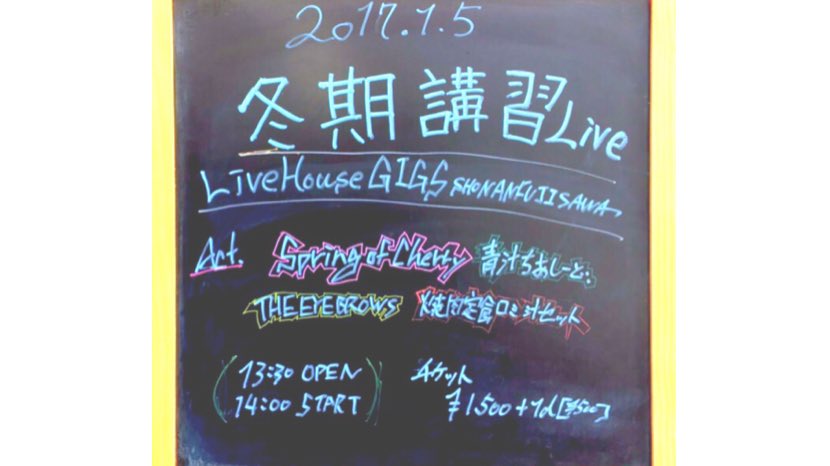 2017.1.5
冬期講習Live
LiveHouse GIGS SHONANFUJISAWA
Act. Spring of Cherry 青汁ちあしーど:
THE EYEBROWS 焼肉定食ロミ汁セット
13:30 OPEN チケット
14:00 START ¥1.500+1d[¥500]